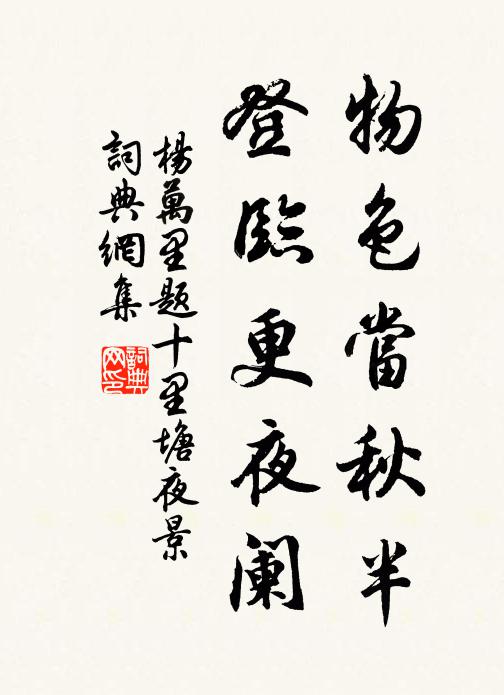 物色當秋半
登臨更夜阑
楊萬里題十里塘夜景
詞典網集
詞典網印